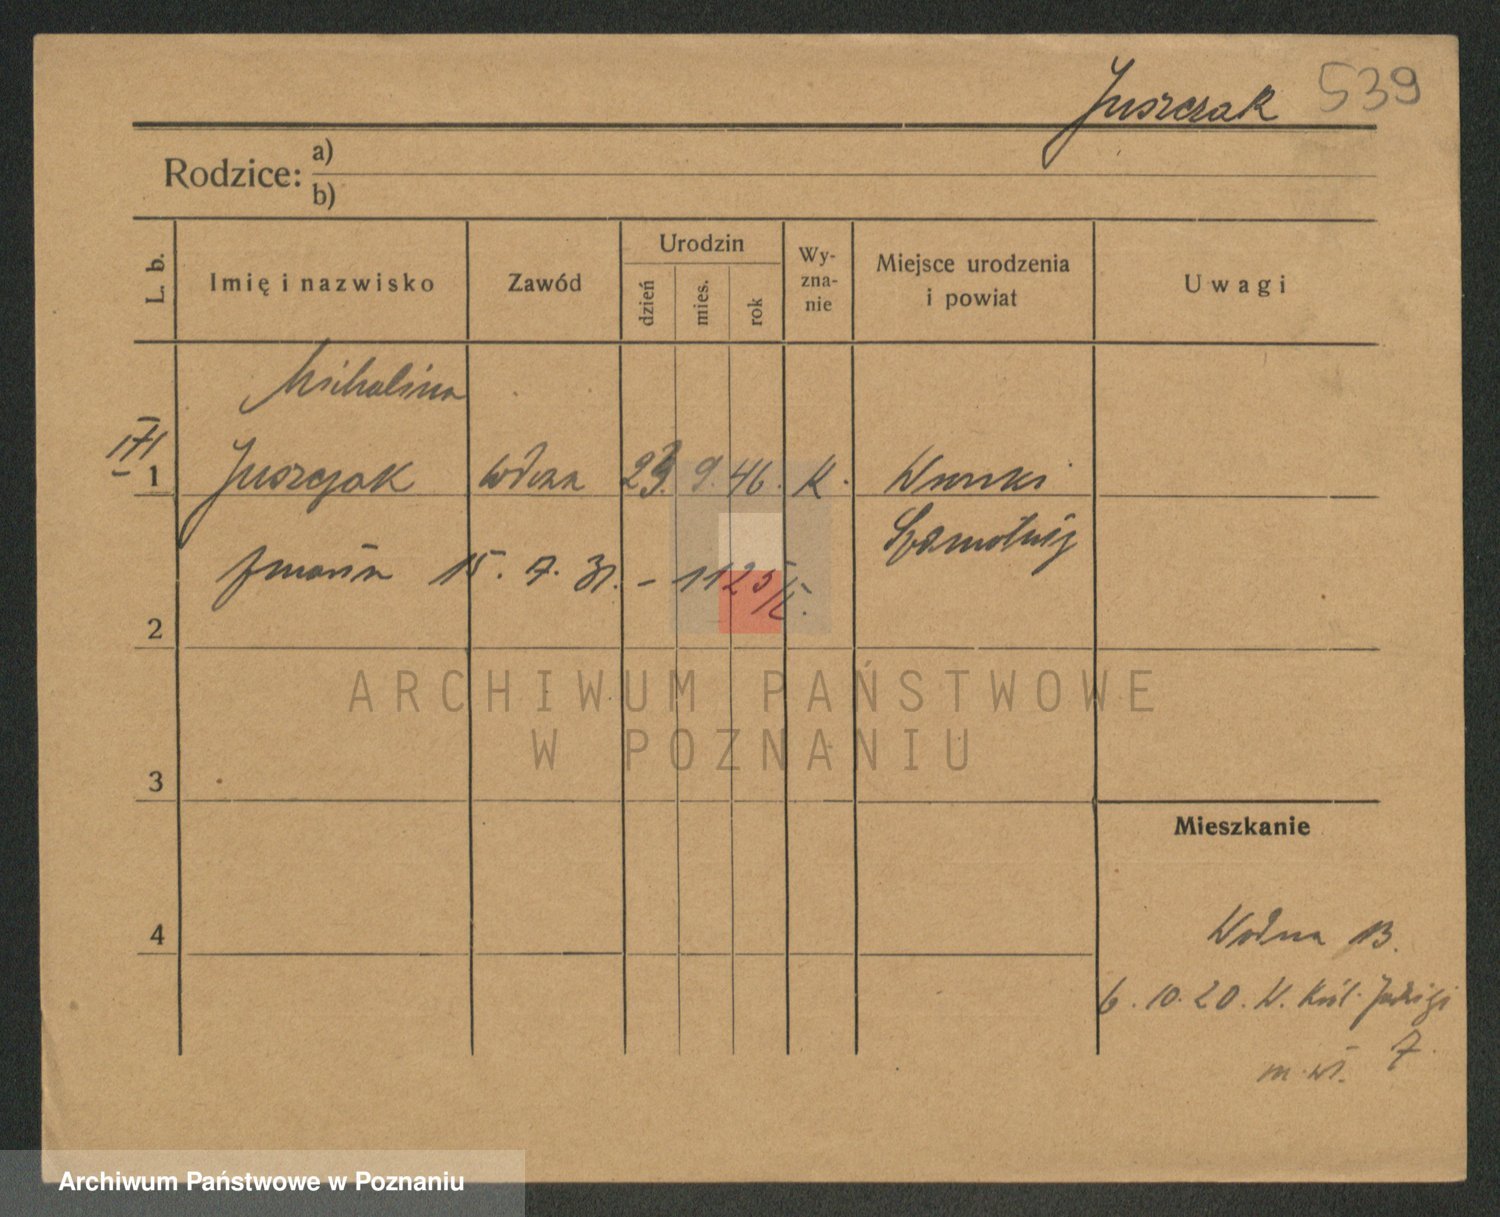 Juszczak 539
Rodzice: a)
b)
L. b.
Imię i nazwisko
Zawód
Urodzin
dzień
mies.
rok
Wy-
zna-
nie
Miejsce urodzenia
i powiat
Uwagi
Michalina
1 Juszczak wdowa 23. 9. 46. K. Wronki
Szamotuły
zmarła 15. 7. 31. – 1125/II.
2
3
4
Mieszkanie
Wodna 13.
6. 10. 20. W. Król. Jadwigi
7.
ARCHIWUM PAŃSTWOWE
W POZNANIU
Archiwum Państwowe w Poznaniu